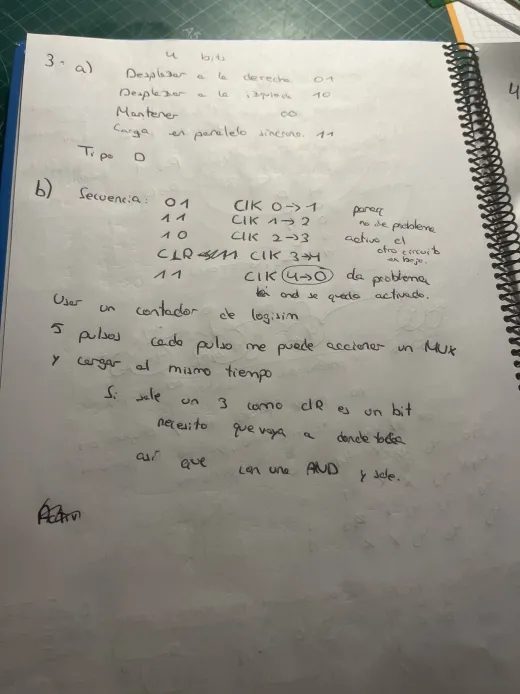 4 bits
3. a)
Desplazar a la derecha 01
Desplazar a la izquierda 10
Mantener 00
Carga en paralelo síncrono. 11
Tipo D
b) Secuencia: 01 CLK 0→1
11 CLK 1→2 no de problema
10 CLK 2→3 activo el
otro circuito
CLR 11 CLK 3→4 en bajo.
11 CLK 4→0 da problema
and se queda activado.
Usar un contador de logisim
5 pulsos cada pulso me puede accionar un MUX
y cargar al mismo tiempo
Si sale un 3 como clR es un bit
necesito que vaya a donde
así que con una AND y sale.